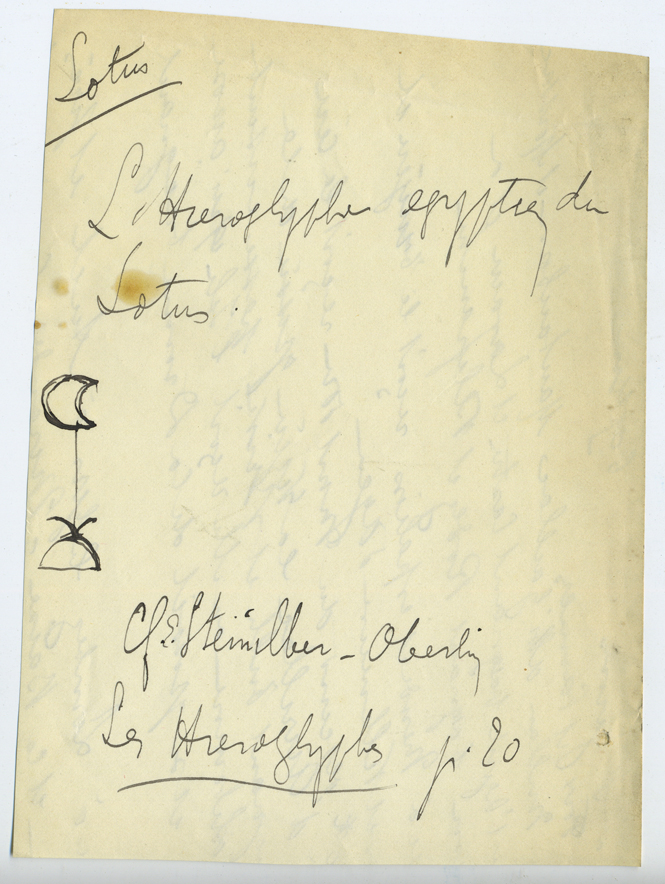 Lotus
L'Hieroglyphe egyptien du
Lotus.
Cf E. Steinilber-Oberlin
Les Hieroglyphes p. 20